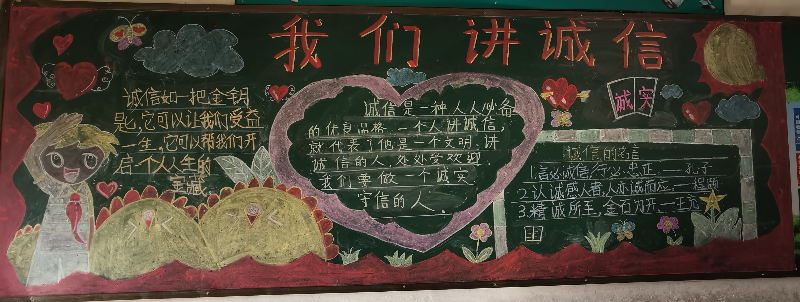 我们讲诚信
诚信如一把金钥
匙，它可以让我们受益
一生，它可以帮我们开
启一个人生的
宝藏
诚信是一种人人必备
的优良品格，一个人讲诚信，
就代表了他是一个文明。讲
诚信的人，处处受欢迎
我们要做一个诚实
守信的人。
诚实
诚信的名言
1.言必诚信，行必忠正。——孔子
2.以诚感人者，人亦诚而应。——程颐
3.精诚所至，金石为开。——王充